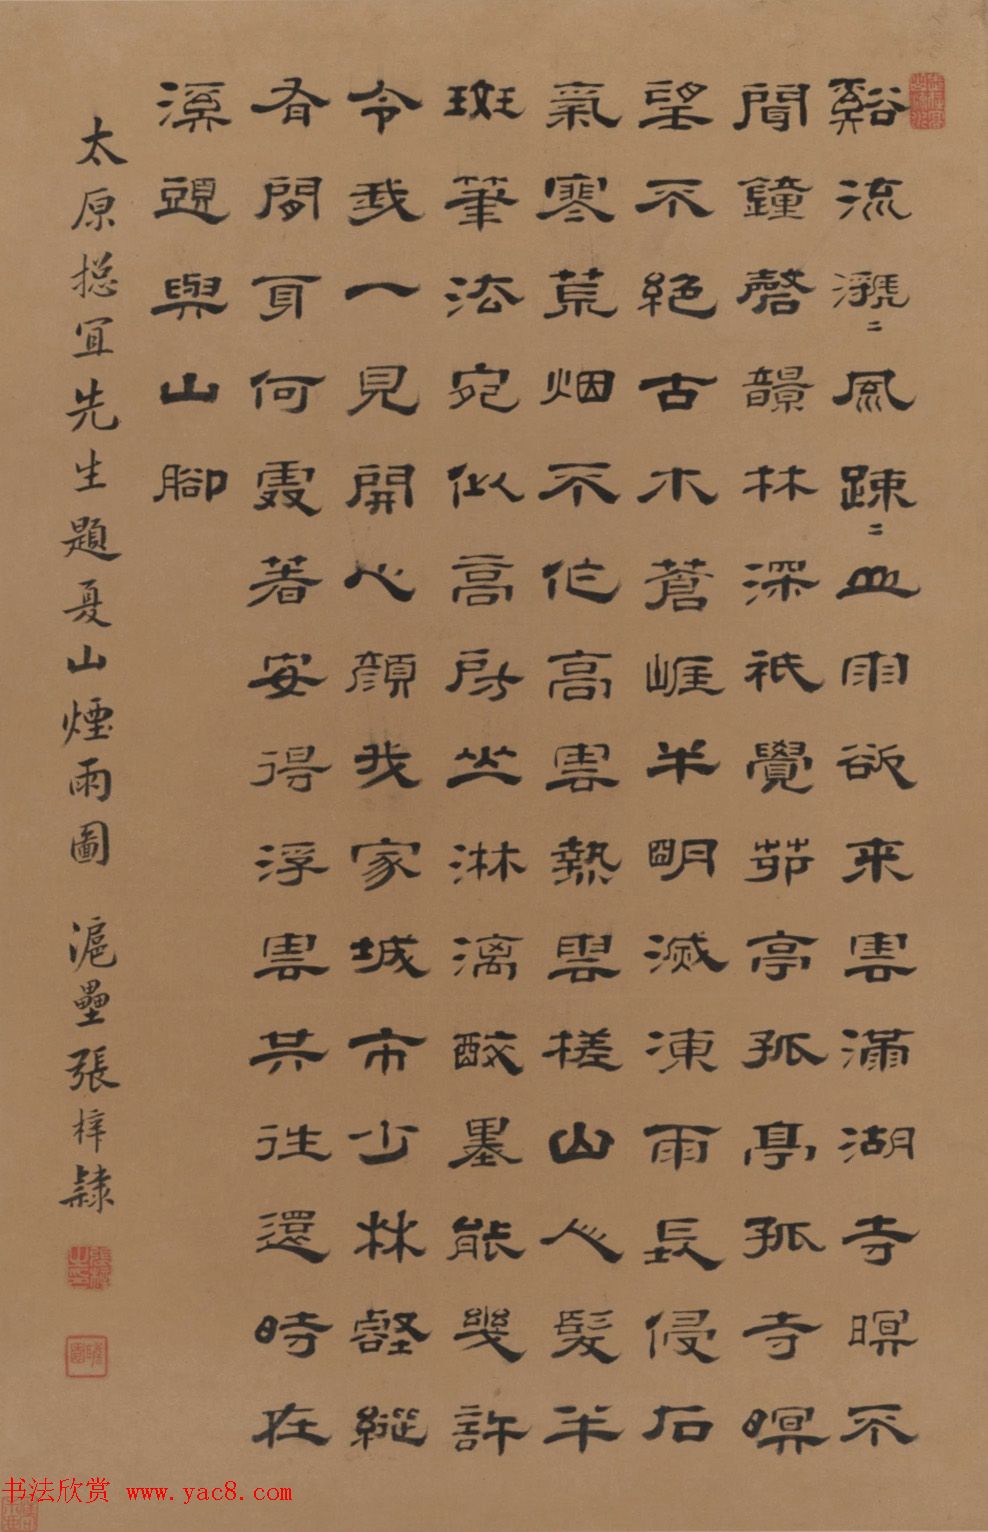 谿流㶁〻風疎〻山雨欲来雲滿湖寺暝不
聞鐘磬韻林深祇覺茆亭孤亭孤寺暝
望不絕古木蒼崖半明滅凍雨長侵石
氣寒荒烟不作高雲熱雲槎山人髮半
斑筆法宛似高房山淋漓醉墨能幾許
令我一見開心顏我家城市少林壑縱
有閒身何處著安得浮雲共往還時在
溪頭與山腳
太原揔宜先生題夏山煙雨圖 滬壘張梓隸
书法欣赏 www.yac8.com